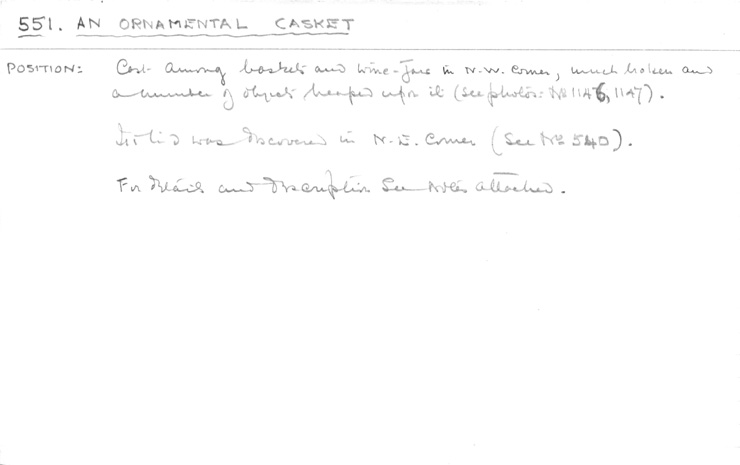 551. AN ORNAMENTAL CASKET
POSITION: Cast among baskets and wine-jars in N.W. Corner, much broken and
a number of objects heaped upon it (see photos: No 1146, 1147).
Its lid was discovered in N.E. Corner (See No 540).
For details and description See Notes attached.